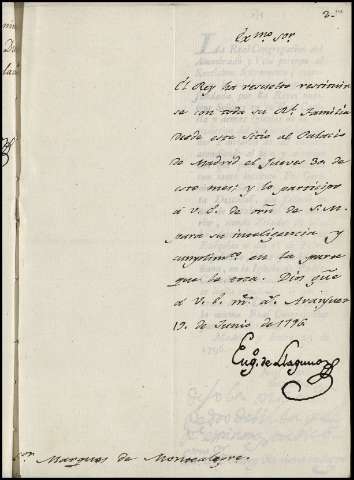 2.
Exmo. Sor.
El Rey ha resuelto restituir
se con toda su Rl. Familia
desde este Sitio al Palacio
de Madrid el Jueves 30 de
este mes; y lo participo
á V. E. de orn. de S. M.
para su inteligencia y
cumplimto. en la parte
que le toca. Dios gũe
á V. E. ms. as. Aranjuez
19. de Junio de 1796.
Eugo. de Llaguno
Sor. Marques de Montealegre.